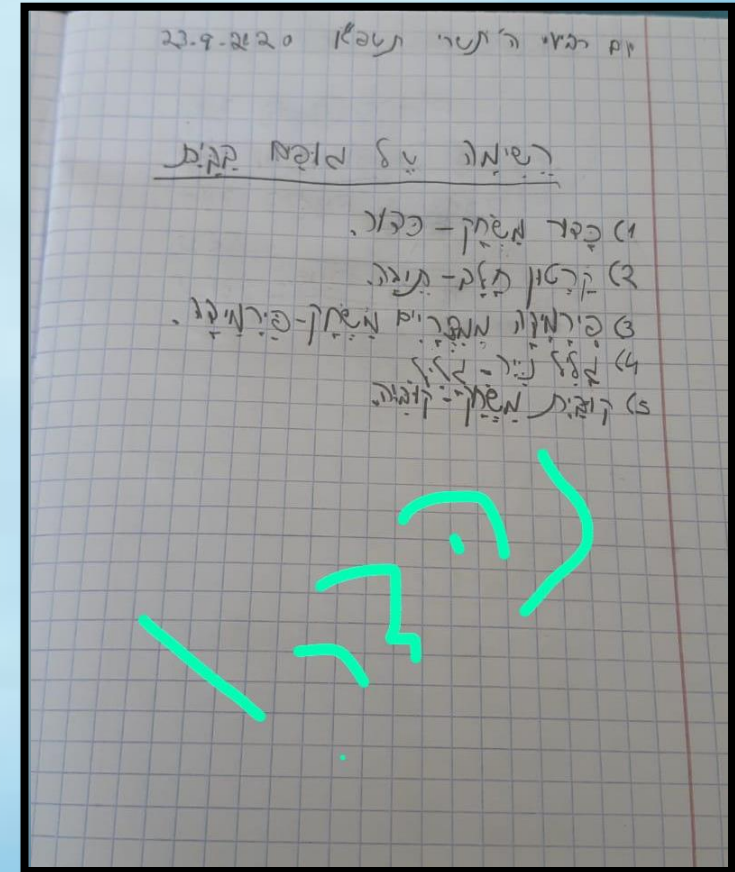 יום רביעי ה' תשרי תשפ"א 23.9.2020
רְשִׁימָה עַל גּוּפִים בַּבַּיִת
1) כַּדּוּר מִשְׂחָק - כַּדּוּר.
2) קַרְטוֹן חָלָב - תֵּיבָה.
3) פִּירָמִידָה מִמִּצְרַיִם מִשְׂחָק - פִּירָמִידָה.
4) גְּלִיל נְיָיר - גָּלִיל
5) קוּבִּיַּת מִשְׂחָק - קוּבִּיָּה.